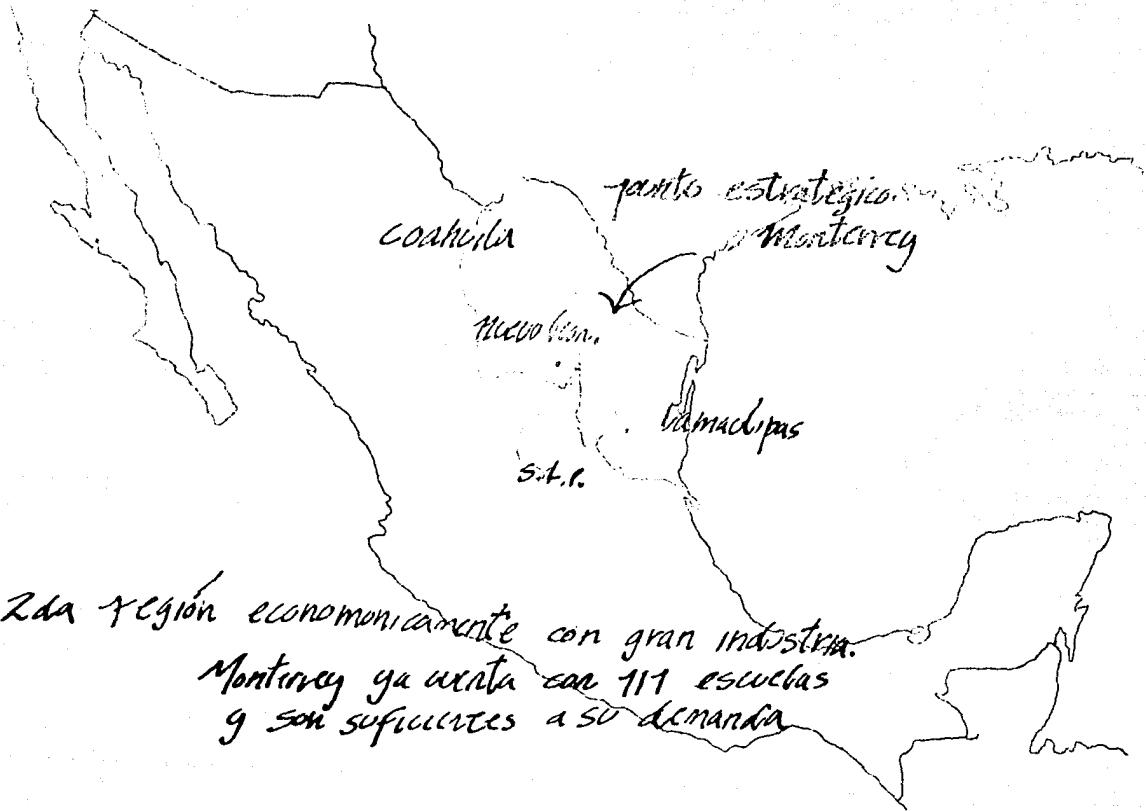 punto estratégico.
Monterrey
Coahuila
nuevo león.
tamaulipas
S.L.P.
2da región economonicamente con gran indústria.
Monterrey ya cuenta con 111 escuelas
y son suficientes a su demanda